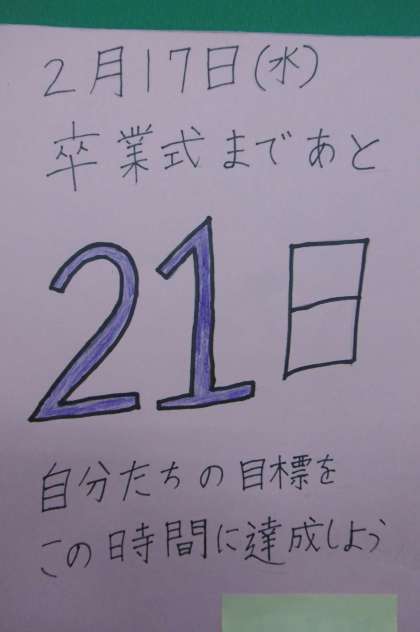 2月17日(水)
卒業式まであと
21日
自分たちの目標を
この時間に達成しよう